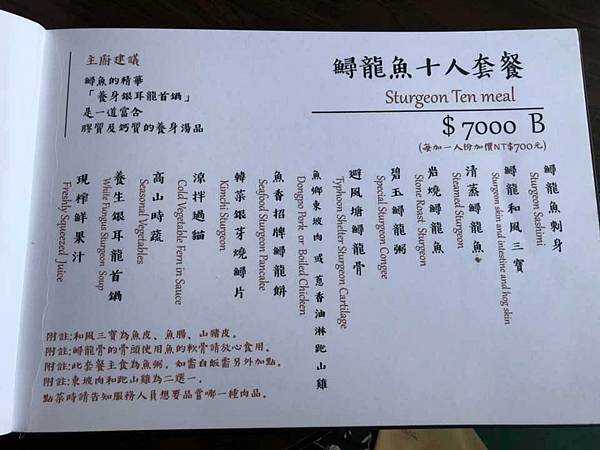 主廚建議
鱘魚的精華
「養身銀耳龍首鍋」
是一道富含
膠質及鈣質的養身湯品
鱘龍魚十人套餐
Sturgeon Ten meal
$ 7000 B
(每加一人份加價NT$700元)
鱘龍魚刺身
Sturgeon Sashimi
鱘龍和風三寶
Sturgeon skin and intestine and hog skin
清蒸鱘龍魚
Steamed Sturgeon
岩燒鱘龍魚
Stone Roast Sturgeon
碧玉鱘龍粥
Special Sturgeon Congee
避風塘鱘龍骨
Typhoon Shelter Sturgeon Cartilage
魚鄉東坡肉 或 蔥香油淋跑山雞
Dongpo Pork or Boiled Chicken
魚香招牌鱘龍餅
Seafood Sturgeon Pancake
韓菜銀芽燒鱘片
Kimchi Sturgeon
涼拌過貓
Cold Vegetable Fern in Sauce
高山時蔬
Seasonal Vegetables
養生銀耳龍首鍋
White Fungus Sturgeon Soup
現榨鮮果汁
Freshly Squeezed Juice
附註:和風三寶為魚皮、魚腸、山豬皮。
附註:鱘龍骨的骨頭使用魚的軟骨請放心食用。
附註:此套餐主食為魚粥，如需白飯需另外加點。
附註:東坡肉和跑山雞為二選一，
點菜時請告知服務人員想要品嘗哪一種肉品。